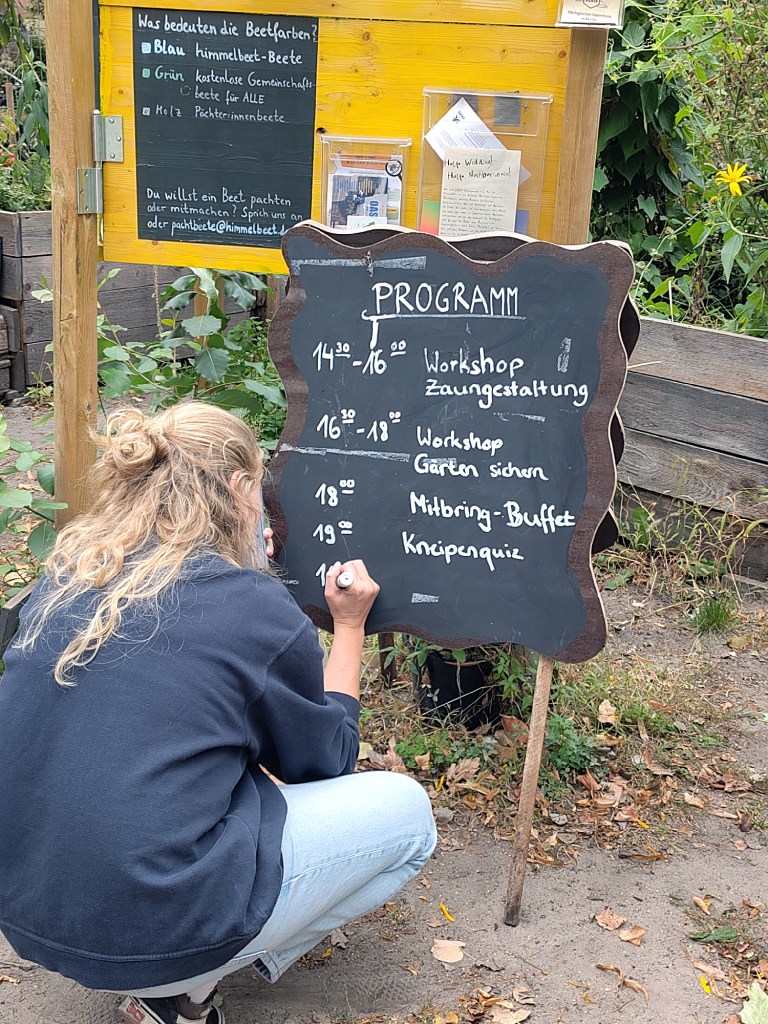 Was bedeuten die Beetfarben?
Blau himmelbeet-Beete
Grün kostenlose Gemeinschafts-
beete für ALLE
Holz Pächter:innenbeete
Du willst ein Beet pachten
oder mitmachen? Sprich uns an
oder pachtbeete@himmelbeet.de
Hallo Nachbarinnen!
PROGRAMM
14³⁰-16⁰⁰ Workshop
Zaungestaltung
16³⁰-18⁰⁰ Workshop
Garten sichern
18⁰⁰ Mitbring-Buffet
19⁰⁰ Kneipenquiz
1